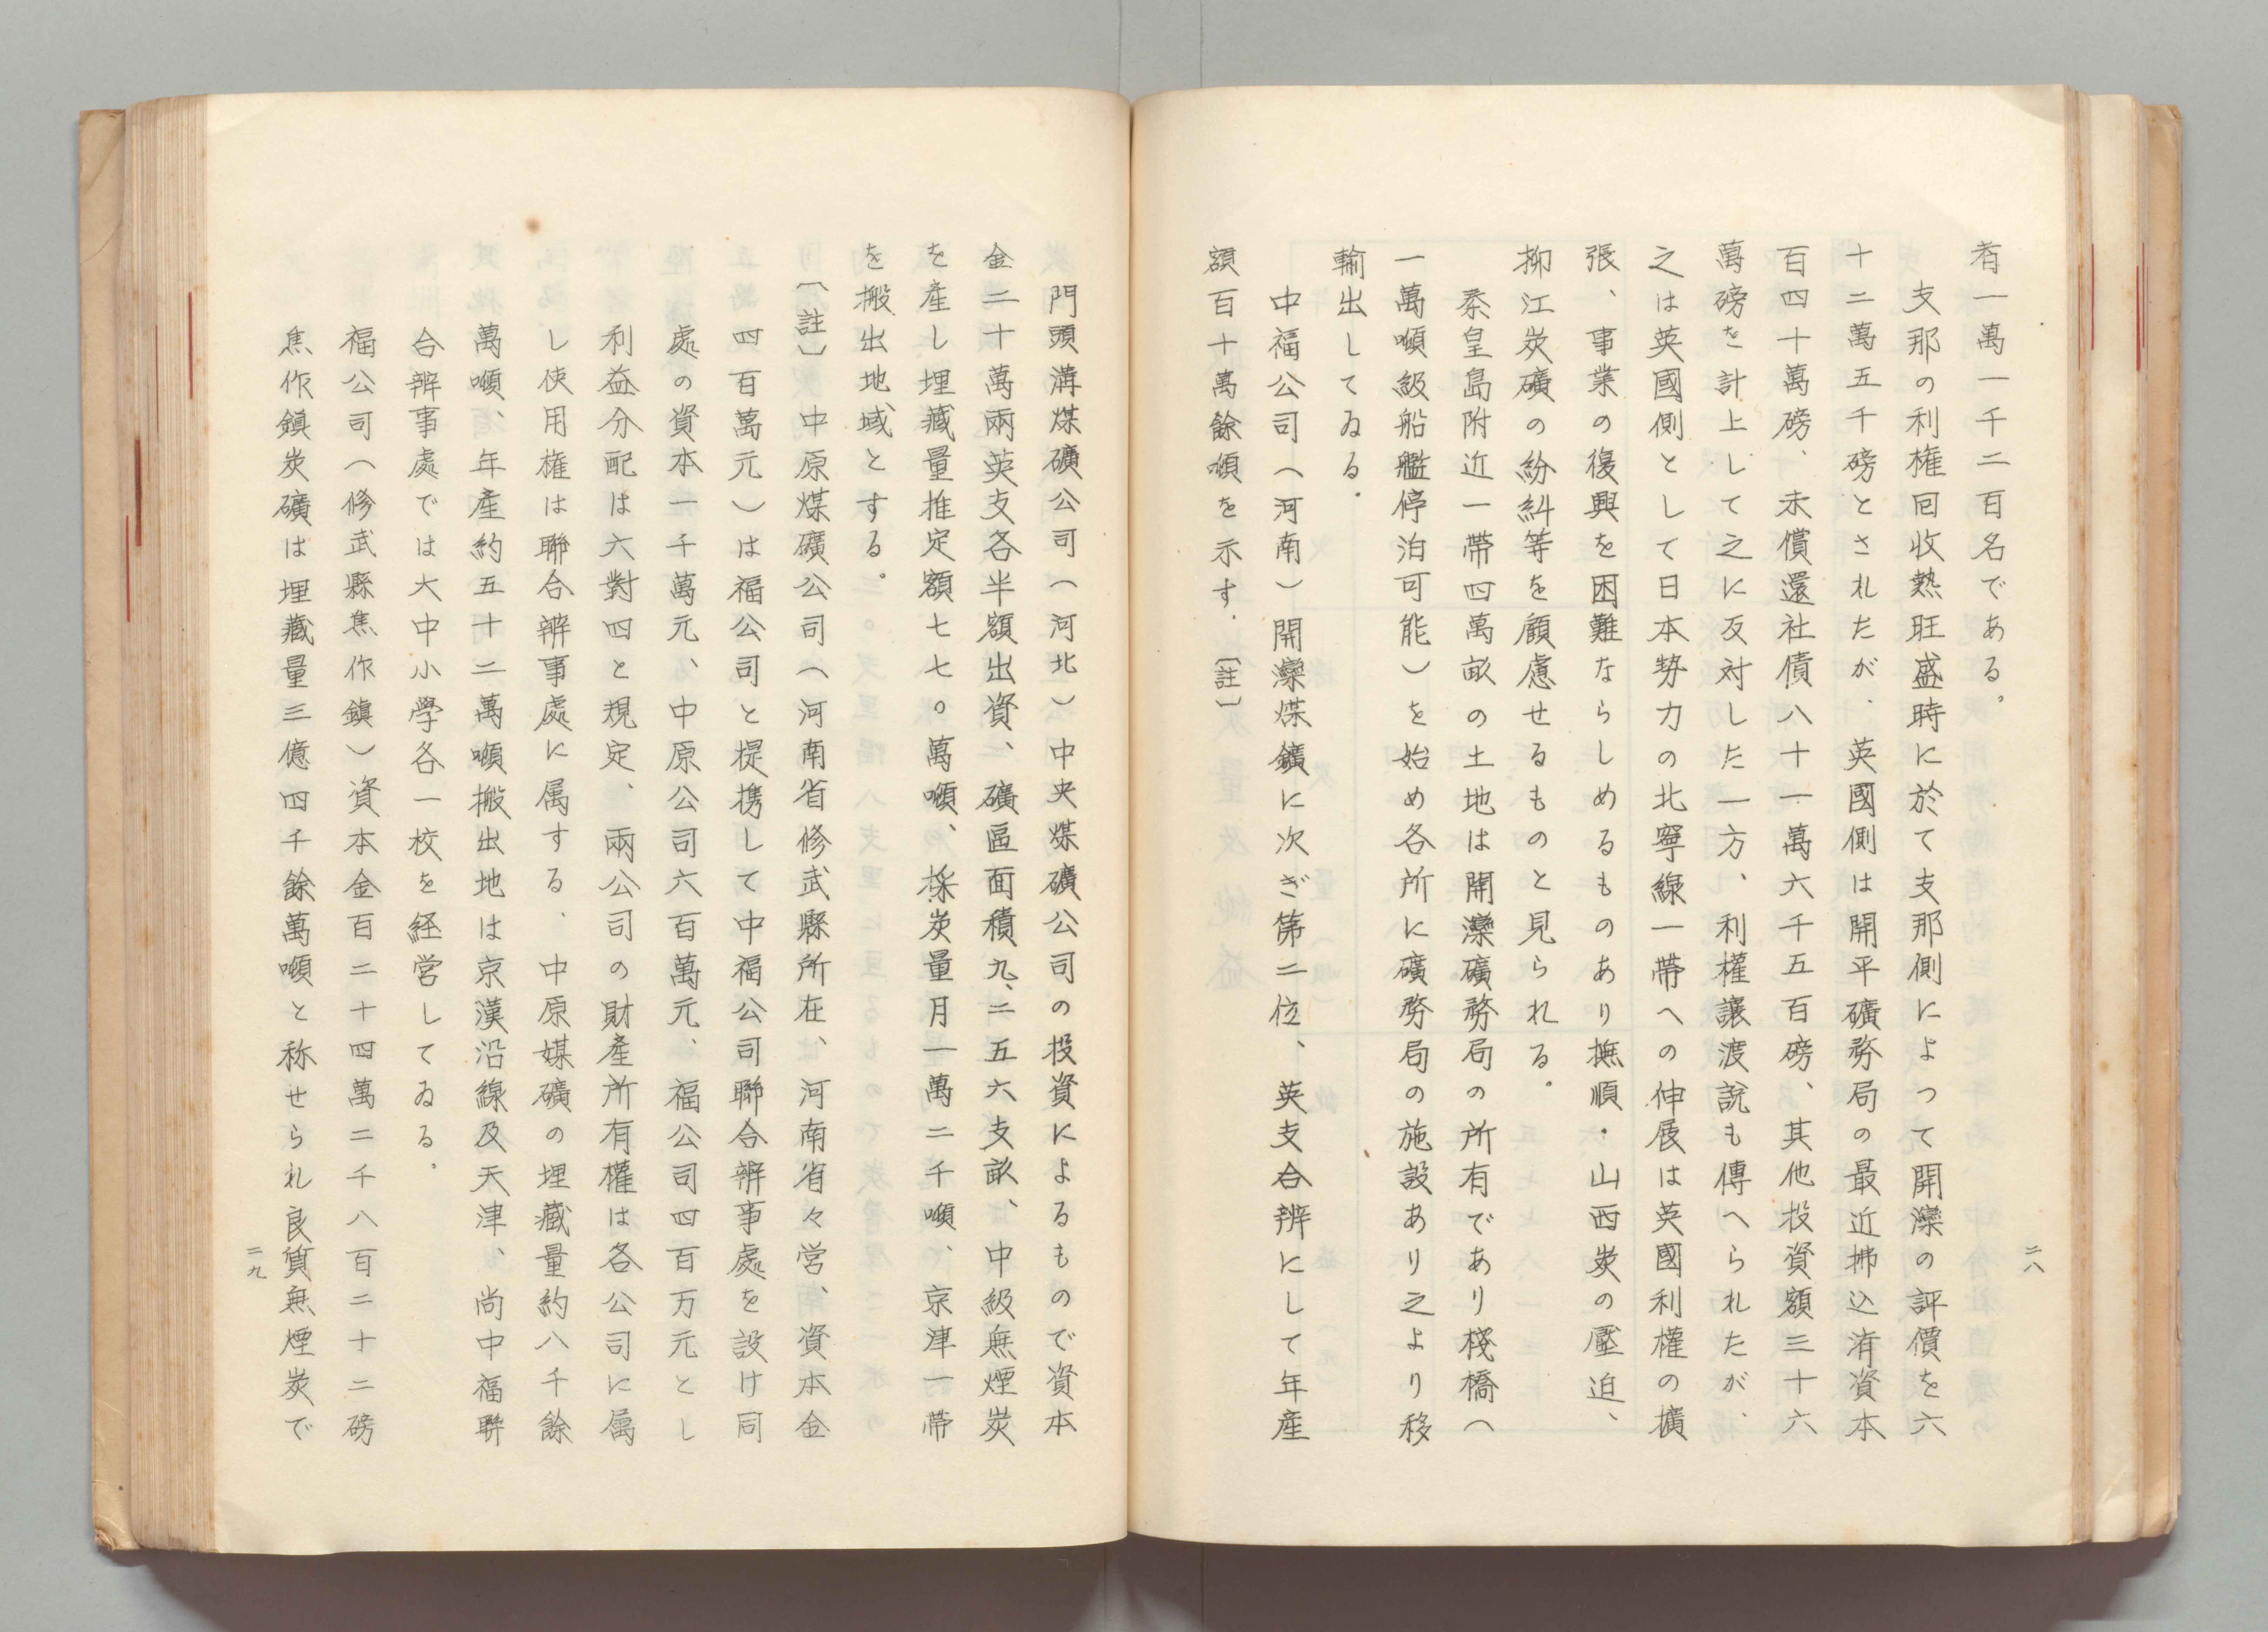 二八
者一萬一千二百名である。
支那の利権回收熱旺盛時に於て支那側によって開灤の評價を六
十二萬五千磅とされたが、英國側は開平礦務局の最近拂込済資本
百四十萬磅、未償還社債八十一萬六千五百磅、其他投資額三十六
萬磅を計上して之に反対した一方、利權讓渡説も傳へられたが、
之は英國側として日本勢力の北寧線一帶への伸展は英國利權の擴
張、事業の復興を困難ならしめるものあり撫順・山西炭の壓迫、
柳江炭礦の紛糾等を顧慮せるものと見られる。
秦皇島附近一帶四萬畝の土地は開灤礦務局の所有であり棧橋（
一萬噸級船艦停泊可能）を始め各所に礦務局の施設あり之より移
輸出してゐる。
中福公司（河南）開灤煤鑛に次ぎ第二位、英支合辨にして年産
額百十萬餘噸を示す。〔註〕
門頭溝煤礦公司（河北）中央煤礦公司の投資によるもので資本
金二十萬兩英支各半額出資、礦區面積九、二五六支畝、中級無煙炭
を産し埋藏量推定額七七〇萬噸、採炭量月一萬二千噸、京津一帶
を搬出地域とする。
〔註〕中原煤礦公司（河南省修武縣所在、河南省々営、資本金
四百萬元）は福公司と提携して中福公司聯合辨事處を設け同
處の資本一千萬元、中原公司六百萬元、福公司四百万元とし
利益分配は六對四と規定、兩公司の財産所有權は各公司に属
し使用権は聯合辨事處に属する、中原媒礦の埋藏量約八千餘
萬噸、年産約五十二萬噸搬出地は京漢沿線及天津、尚中福聨
合辨事處では大中小學各一校を経営してゐる。
福公司（修武縣焦作鎮）資本金百二十四萬二千八百二十二磅
焦作鎮炭礦は埋藏量三億四千餘萬噸と称せられ良質無煙炭で
二九